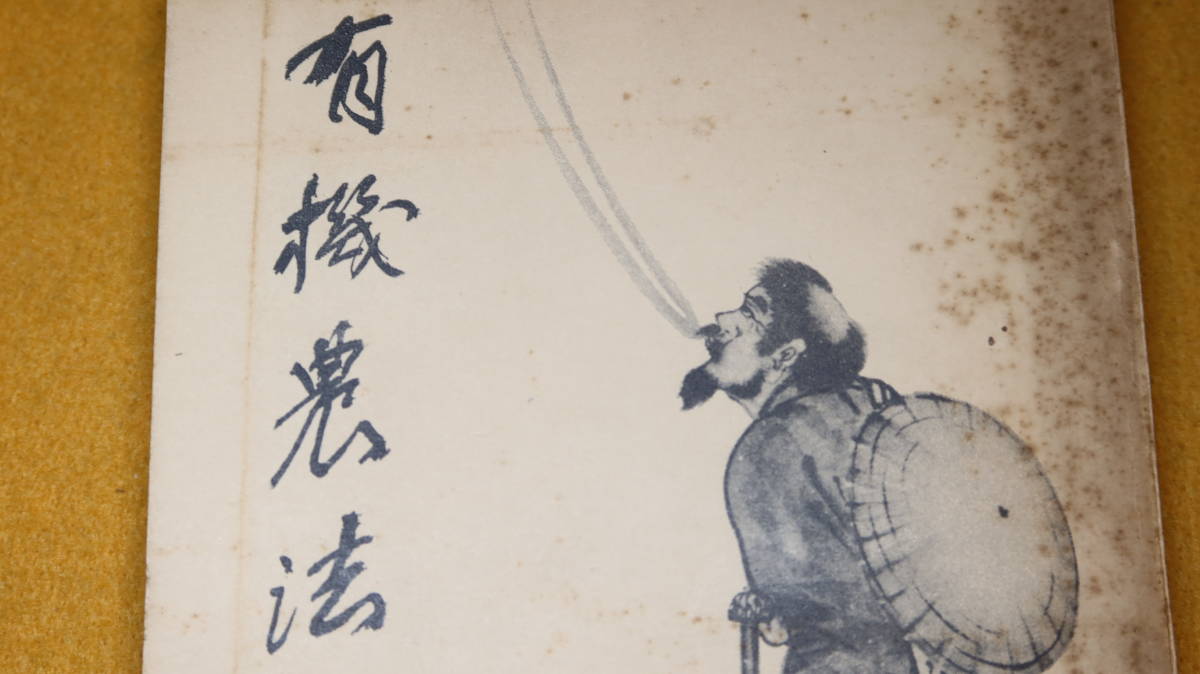 有機農法